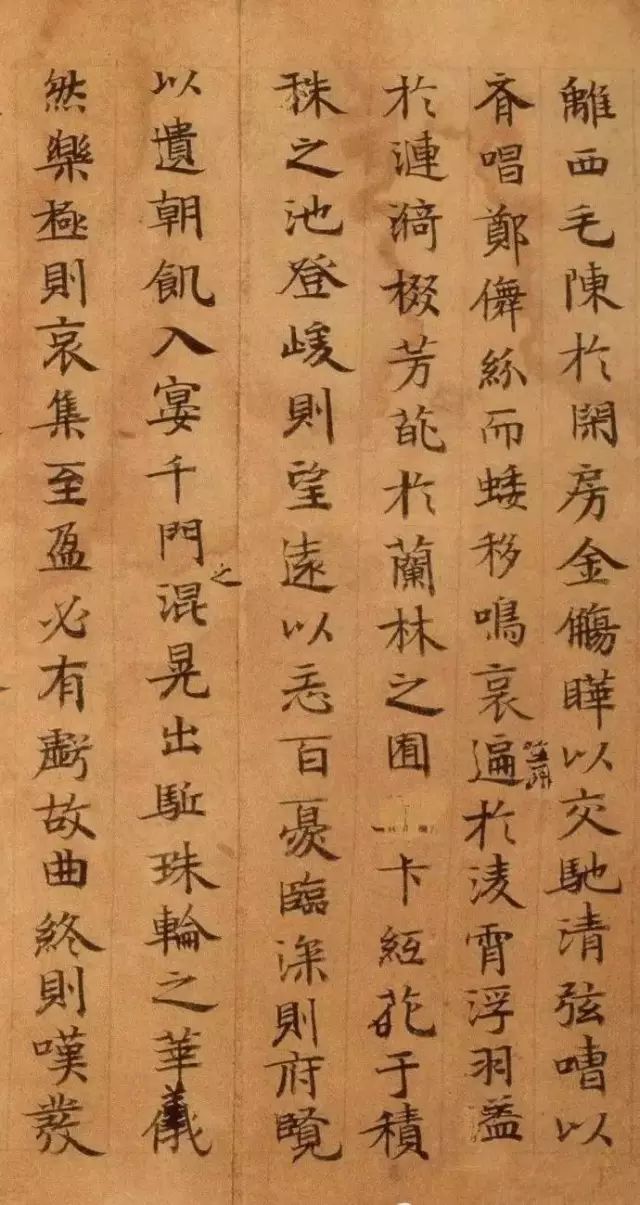 離西毛陳於閑房金觴曄以交馳清弦嘈以
齊唱鄭儛紛而蜲移鳴哀遍於淩霄浮羽溢
於漣漪棳芳於蘭林之囿卞于積
秼之池登峻則望遠以忘百憂臨深則府覽
以遺朝飢入宴千門之混晃出駈珠輪之華儀
然樂極則哀集至盈必有虧故曲終則嘆發